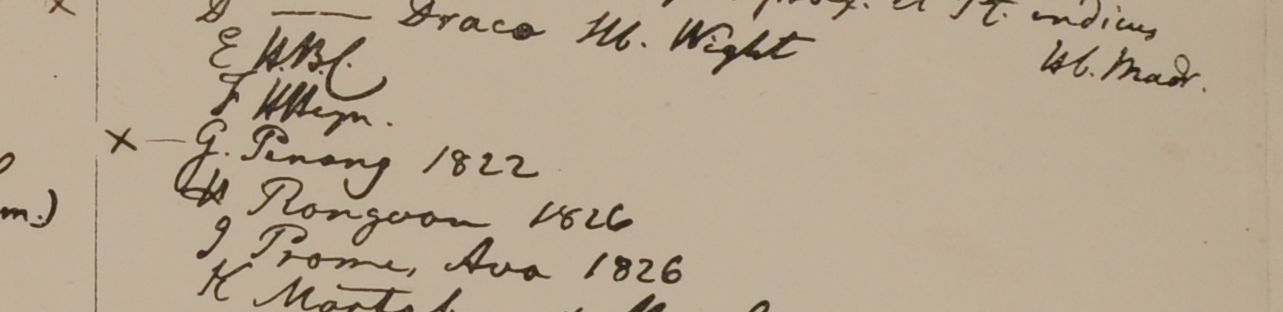 D —— Draco Hb. Wight
et Pt. indicus
Hb. Madr.
E H.B.C.
F HHeyn.
x — G. Penang 1822
H Rangoon 1826
m.)
I Prome, Ava 1826
K